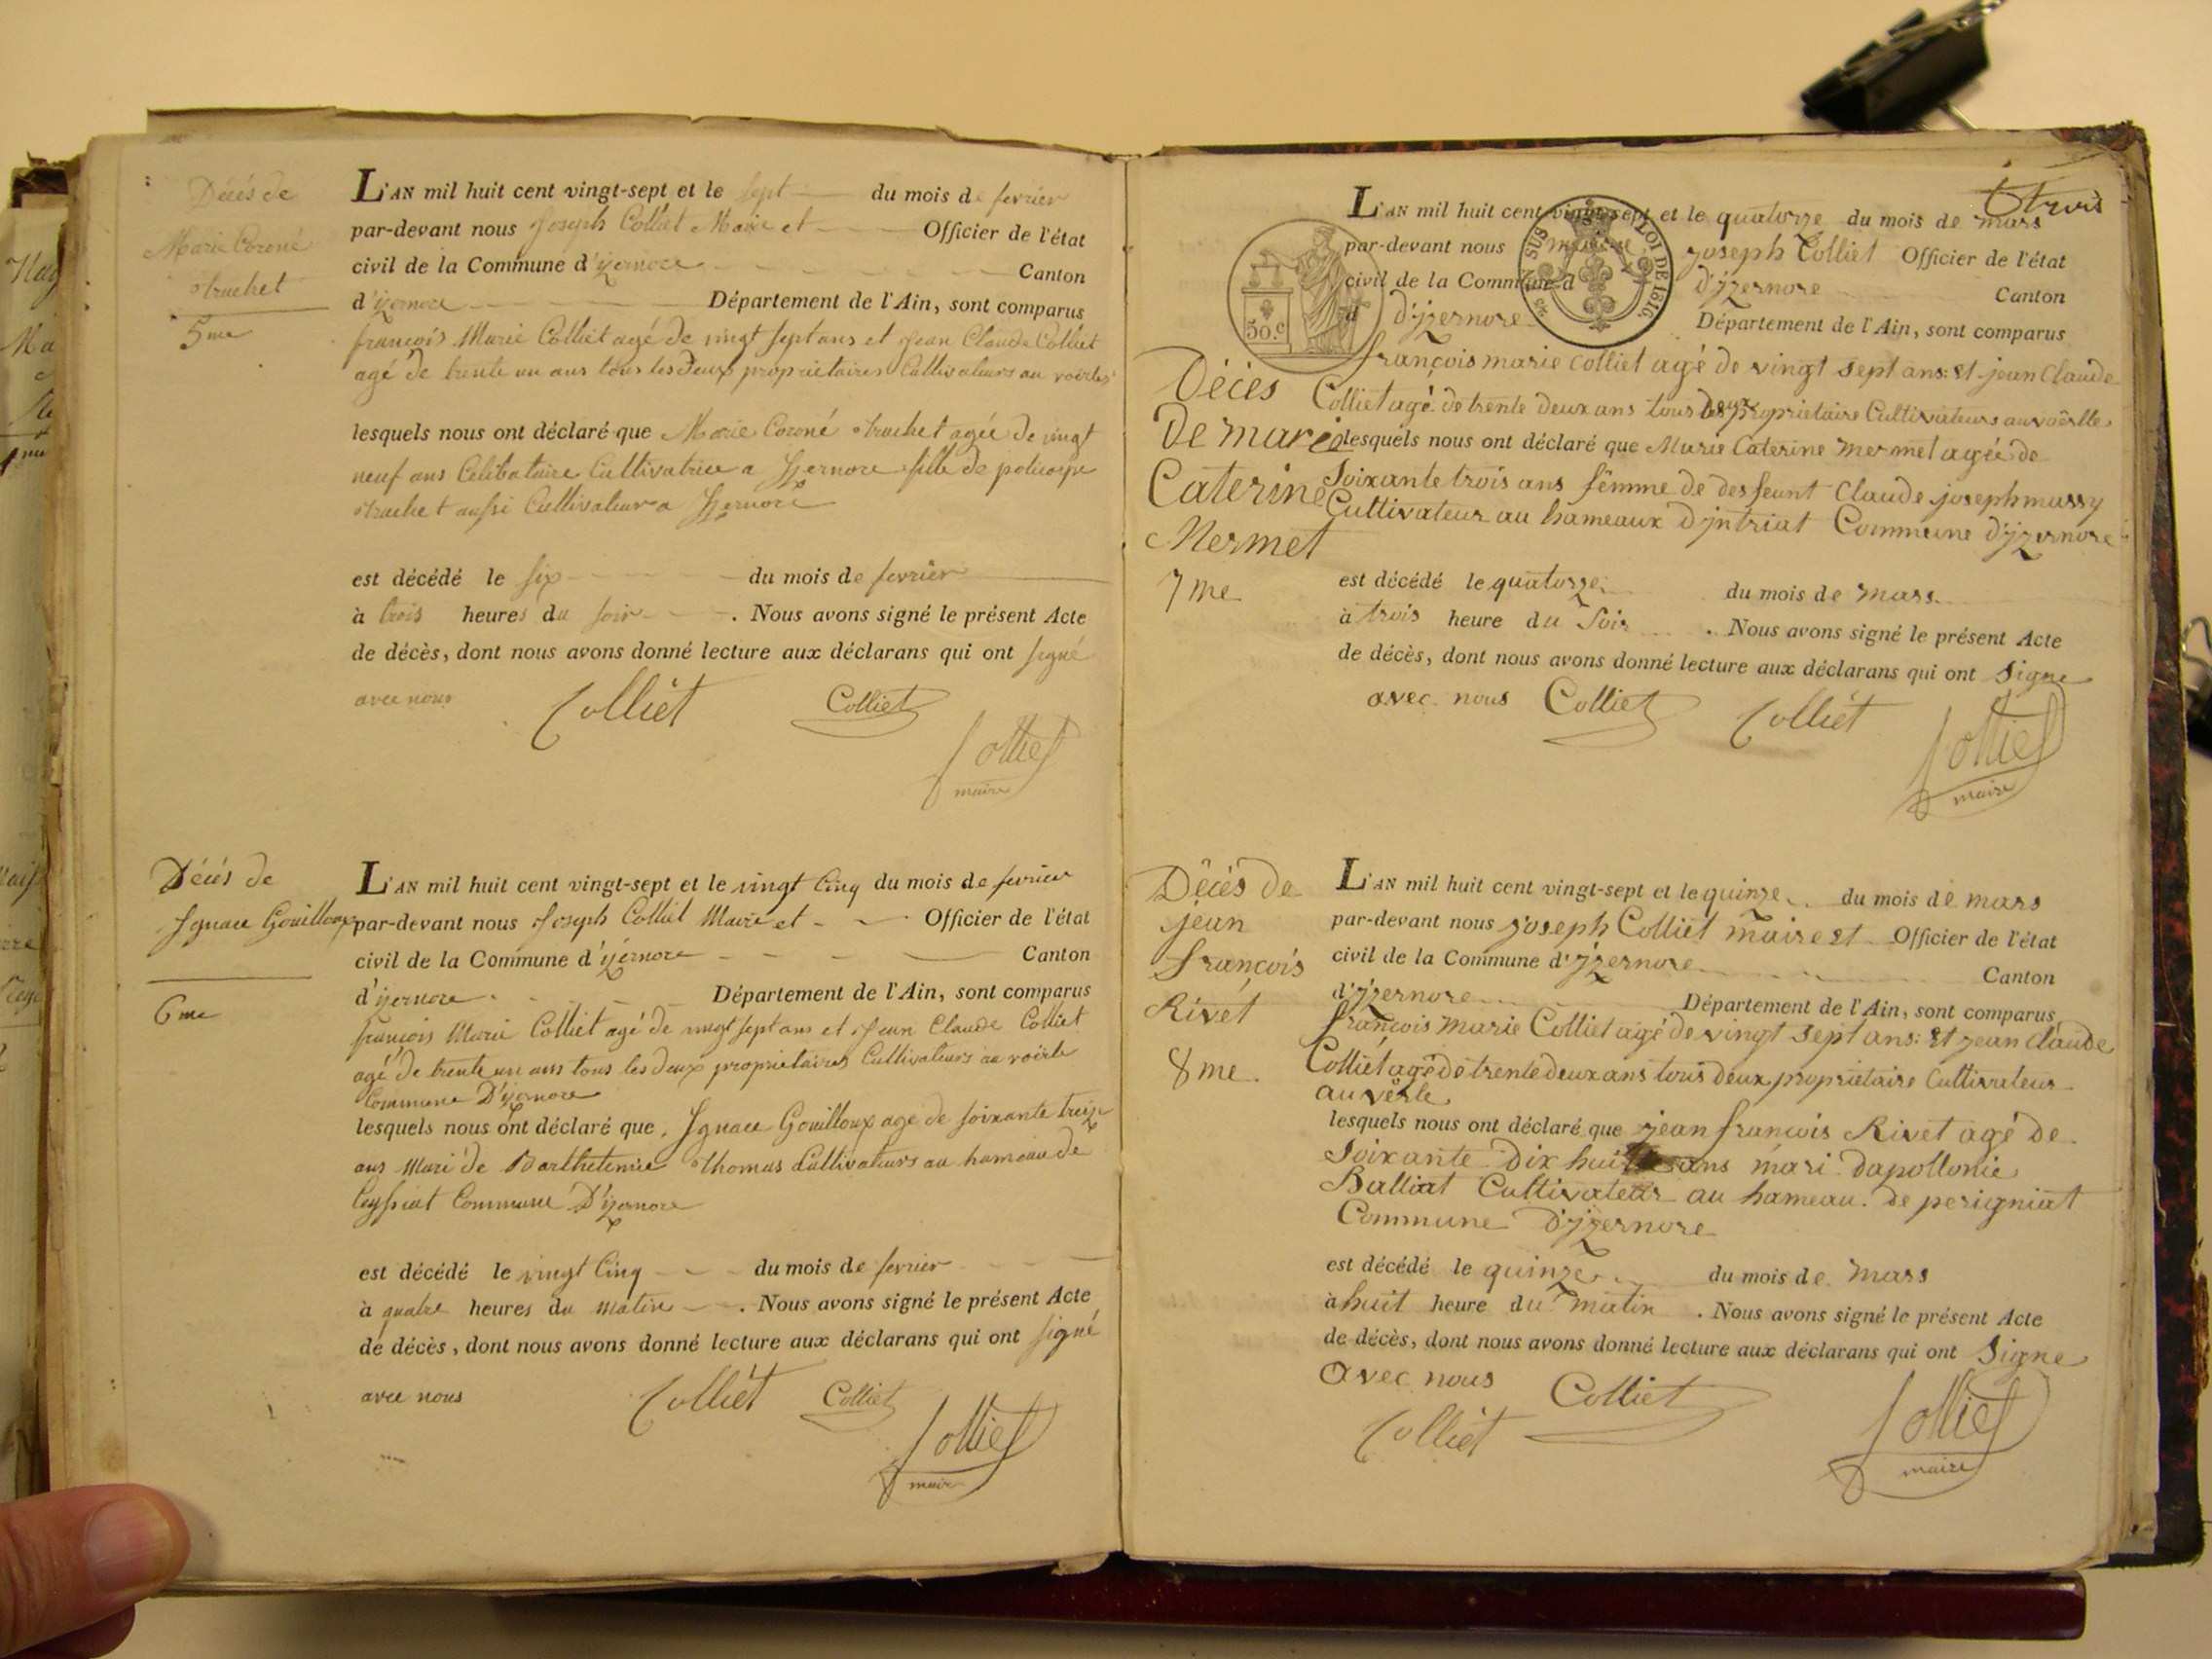 Décés de
Marie Coroné
Truchet
5me
L'AN mil huit cent vingt-sept et le sept du mois de fevrier
par-devant nous Joseph Colliet Maire et Officier de l'état
civil de la Commune d'izernore Canton
d'izernore Département de l'Ain, sont comparus
françois Marie Colliet agé de vingt sept ans et Jean Claude Colliet
agé de trente un ans tous les deux proprietaires Cultivateurs au voerle
lesquels nous ont déclaré que Marie Coroné Truchet agée de vingt
neuf ans Celibataire Cultivatrice a Izernore fille de policarpe
Truchet aussi Cultivateur a Izernore
est décédé le six du mois de fevrier
à trois heures du soir . Nous avons signé le présent Acte
de décès, dont nous avons donné lecture aux déclarans qui ont signé
avec nous Colliet Colliet
Colliet
maire
Décés de
Ignace Gouilloux
6me
L'AN mil huit cent vingt-sept et le vingt Cinq du mois de fevrier
par-devant nous Joseph Colliet Maire et Officier de l'état
civil de la Commune d'izernore Canton
d'izernore Département de l'Ain, sont comparus
françois Marie Colliet agé de vingt sept ans et Jean Claude Colliet
agé de trente un ans tous les deux proprietaires Cultivateurs au voerle
Commune D'izernore
lesquels nous ont déclaré que Ignace Gouilloux age de soixante treize
ans Mari de Thomas Cultivateurs au hameau de
Ceyssiat Commune D'izernore
est décédé le vingt Cinq du mois de fevrier
à quatre heures du matin . Nous avons signé le présent Acte
de décès, dont nous avons donné lecture aux déclarans qui ont signé
avec nous Colliet Colliet
Colliet
maire
trois
L'AN mil huit cent vingt-sept et le quatorze du mois de mars
par-devant nous joseph Colliet Officier de l'état
civil de la Commune d d'jzernore Canton
d d'jzernore Département de l'Ain, sont comparus
50.c
SUS LOI DE 1816.
françois marie colliet agé de vingt sept ans: et jean Claude
Colliet agé de trente deux ans tous deux proprietaire Cultivateurs au voërlle
Décés
De marie
Caterine
Mermet
7me
lesquels nous ont déclaré que Marie Caterine mermet agée de
Soixante trois ans femme de desfeunt Claude joseph mussy
Cultivateur au hameaux d'jntriat Commune d'jzernore
est décédé le quatorze du mois de mars
à trois heure du Soir . Nous avons signé le présent Acte
de décès, dont nous avons donné lecture aux déclarans qui ont Signe
avec nous Colliet Colliet
Colliet
maire
Décés de
jean
françois
Rivet
8me
L'AN mil huit cent vingt-sept et le quinze du mois de mars
par-devant nous joseph Colliet maire et Officier de l'état
civil de la Commune d'jzernore Canton
d'jzernore Département de l'Ain, sont comparus
françois marie Colliet agé de vingt sept ans: et jean claude
Colliet agé de trente deux ans tous deux proprietaire Cultivateur
au vërle
lesquels nous ont déclaré que jean françois Rivet agé de
Soixante Dix huit ans mari dapollonie
Balliat Cultivateur au hameau de perigniat
Commune d'jzernore
est décédé le quinze du mois de mars
à huit heure du matin . Nous avons signé le présent Acte
de décès, dont nous avons donné lecture aux déclarans qui ont Signe
avec nous Colliet
Colliet Colliet
maire